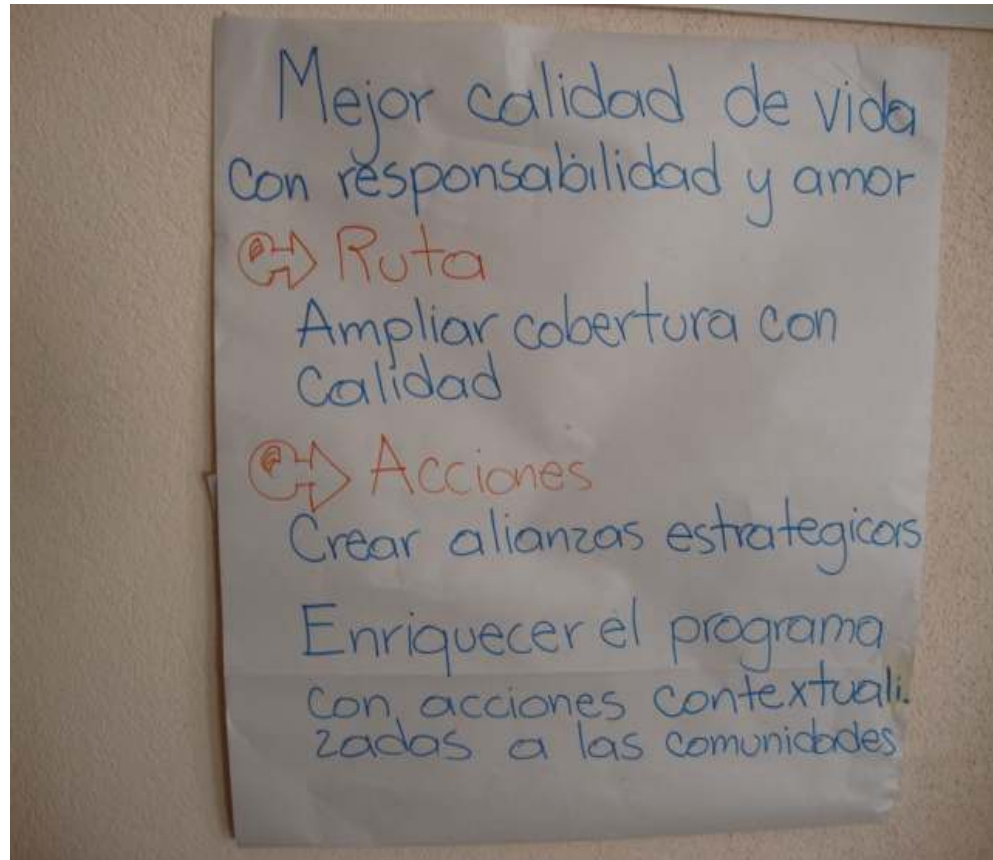 Mejor calidad de vida
con responsabilidad y amor
Ruta
Ampliar cobertura con
Calidad
Acciones
Crear alianzas estrategicas
Enriquecer el programa
con acciones contextuali.
zadas a las comunidades